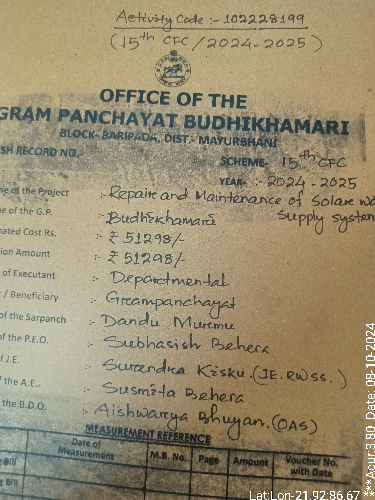 Activity Code :- 102228199
(15th CFC /2024-2025)
OFFICE OF THE
GRAM PANCHAYAT BUDHIKHAMARI
BLOCK- BARIPADA, DIST.- MAYURBHANJ
SH RECORD NO.-
SCHEME- 15th CFC
YEAR- :- 2024 - 2025
me of the Project :- Repaire and Maintenance of Solare Wa
Supply system
me of the G.P. :- Budhikhamari
mated Cost Rs. :- ₹ 51298/-
ion Amount :- ₹ 51298/-
of Executant :- Departmental
r / Beneficiary :- Grampanchayat
of the Sarpanch :- Dandu Murmu
of the P.E.O. :- Subhasish Behera
of J.E. :- Surendra Kisku. (JE. RWSS.)
f the A.E.. :- Susmita Behera
the B.D.O. :- Aishwarya Bhuyan. (OAS)
MEASUREMENT REFERENCE
g Bill/ Date of Measurement M.B. No. Page Amount Voucher No. with Date
g Bill/
Lat:Lon-21.92:86.67
***Acur:3.80 Date: 08-10-2024